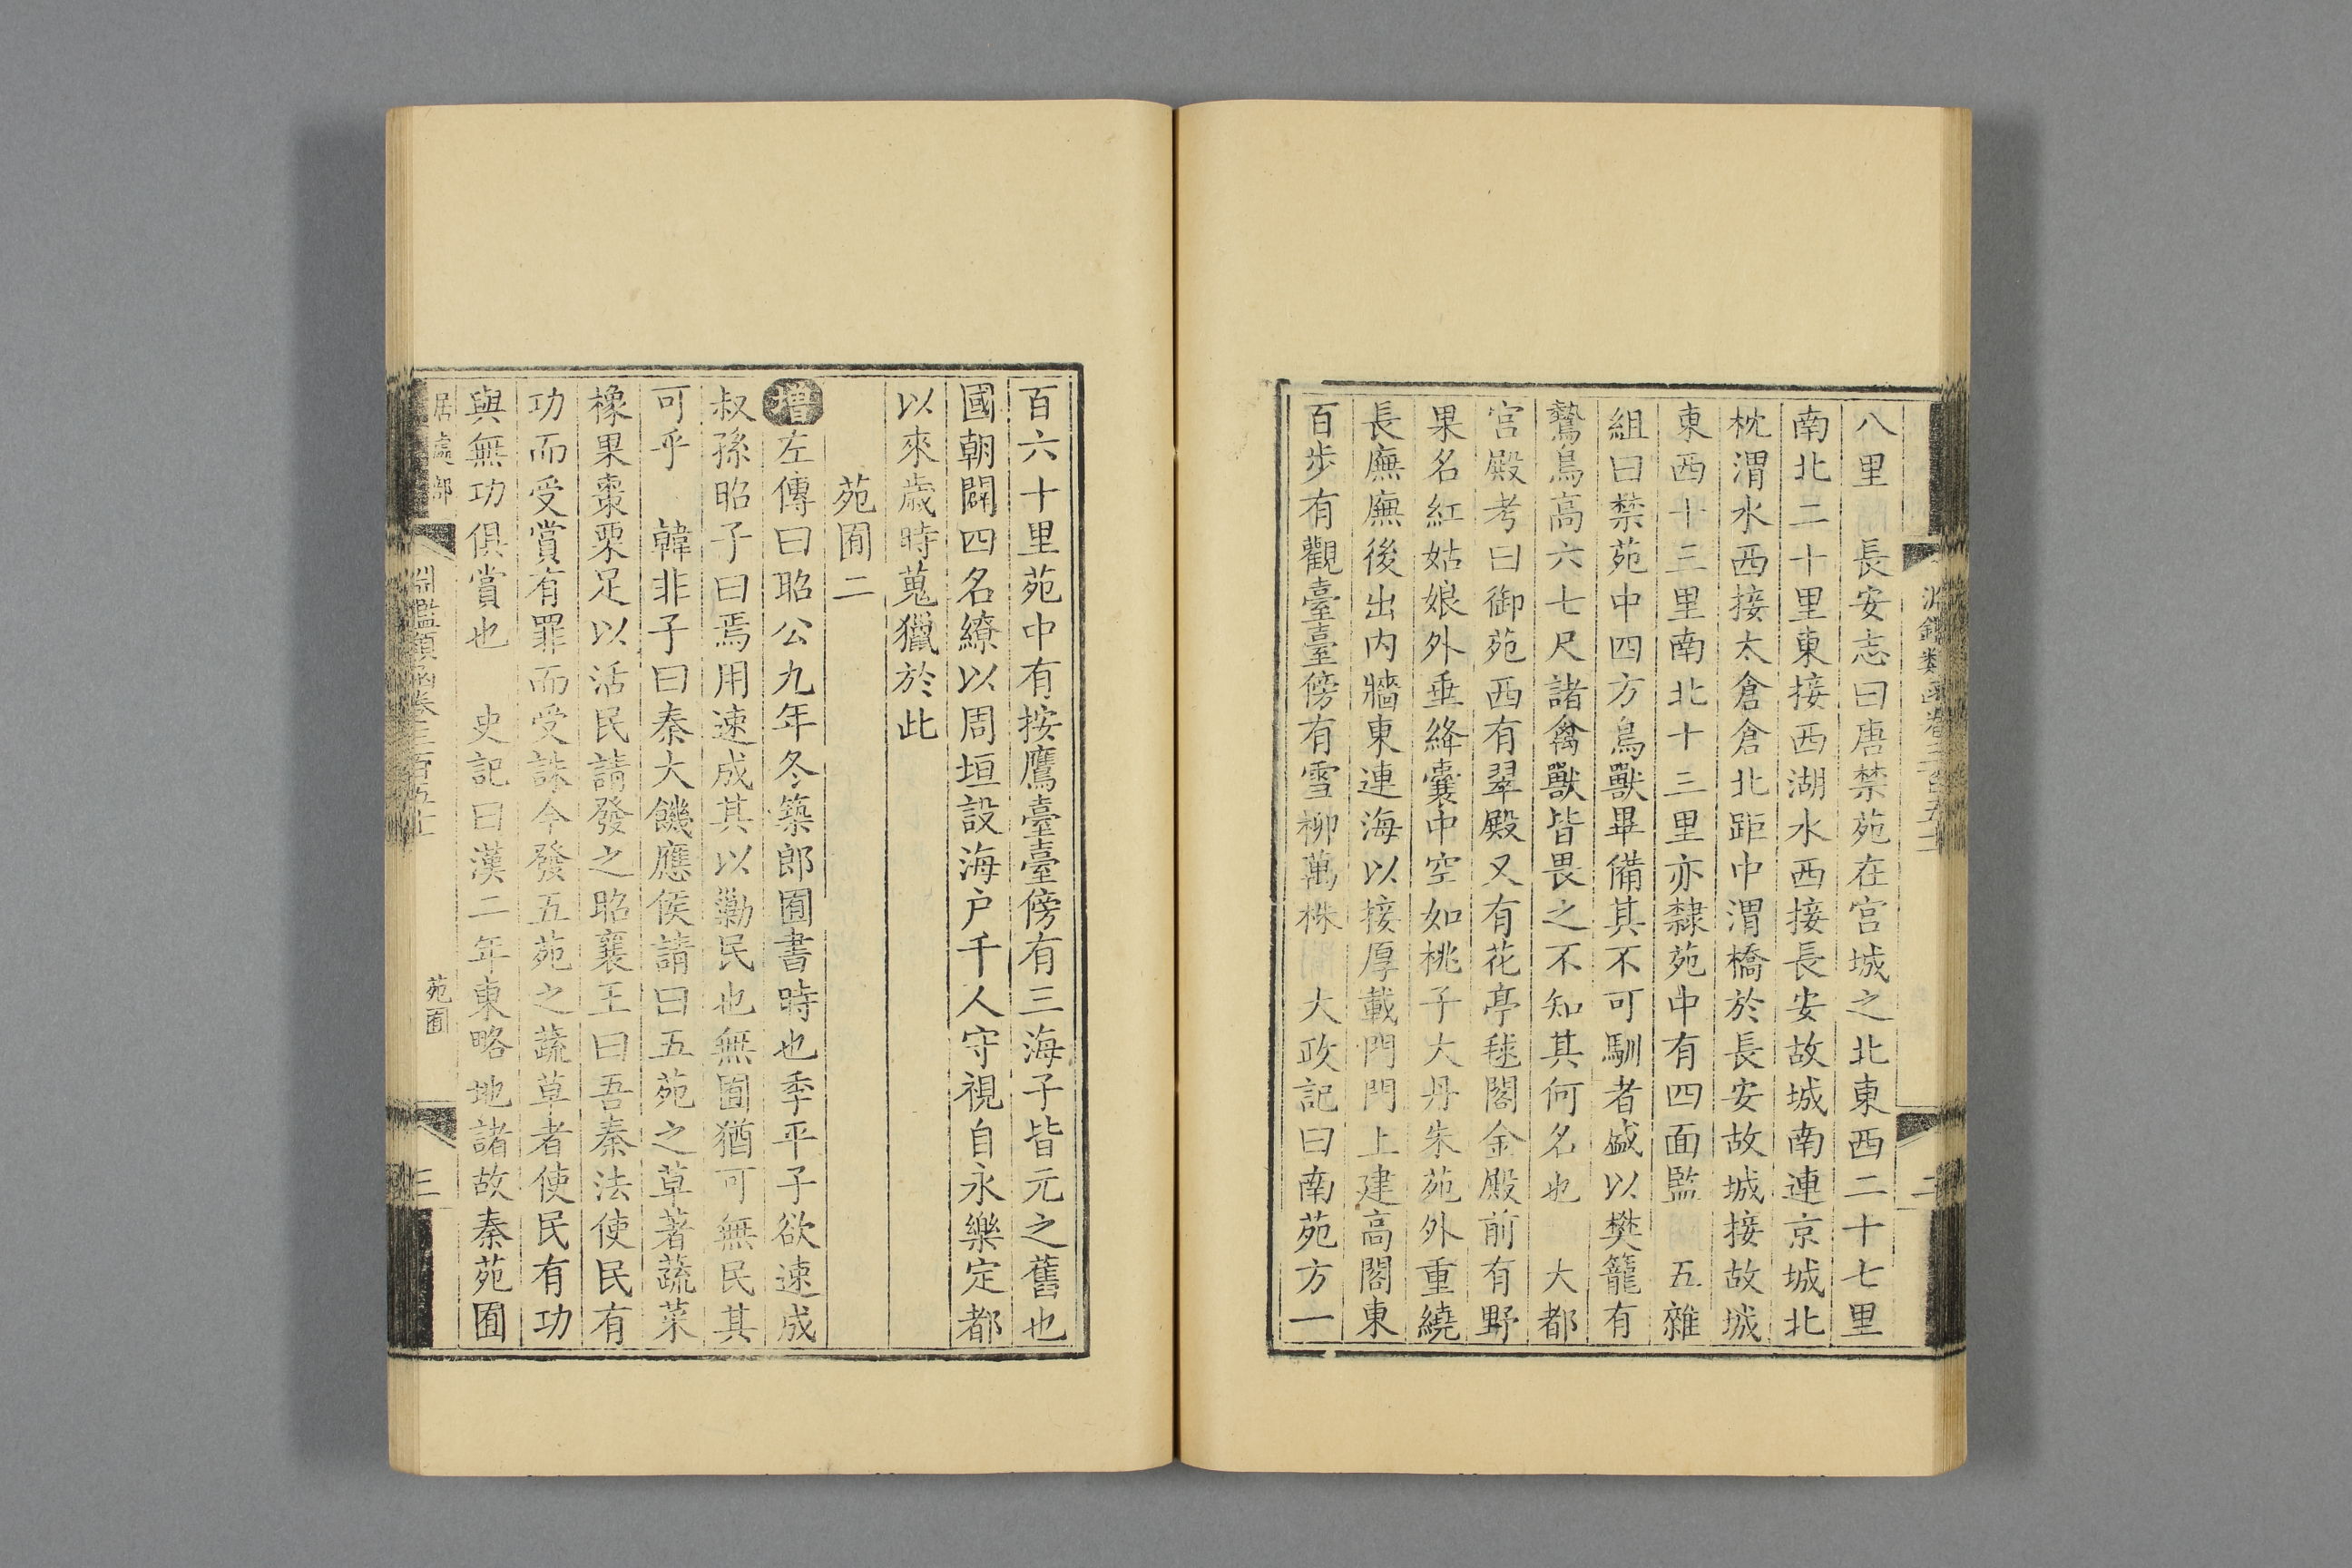 八里　長安志曰唐禁苑在宮城之北東西二十七里
南北二十里東接西湖水西接長安故城南連京城北
枕渭水西接太倉倉北距中渭橋於長安故城接故城
東西十三里南北十三里亦隸苑中有四面監　五雜
組曰禁苑中四方鳥獸畢備其不可馴者盛以樊籠有
鷙鳥高六七尺諸禽獸皆畏之不知其何名也　大都
宮殿考曰御苑西有翠殿又有花亭毬閣金殿前有野
果名紅姑娘外垂絳囊中空如桃子大丹朱苑外重繞
長廡廡後出内牆東連海以接厚載門門上建高閣東
百步有觀臺臺傍有雪柳萬株　大政記曰南苑方一
百六十里苑中有按鷹臺臺傍有三海子皆元之舊也
國朝闢四名繚以周垣設海户千人守視自永樂定都
以來歳時蒐獵於此
苑囿二
增左傳曰昭公九年冬築郎囿書時也季平子欲速成
叔孫昭子曰焉用速成其以勦民也無囿猶可無民其
可乎　韓非子曰秦大饑應侯請曰五苑之草著蔬菜
橡果棗栗足以活民請發之昭襄王曰吾秦法使民有
功而受賞有罪而受誅今發五苑之蔬草者使民有功
與無功俱賞也　史記曰漢二年東略地諸故秦苑囿
居處部
淵鑑類函卷三百五十
苑囿
三